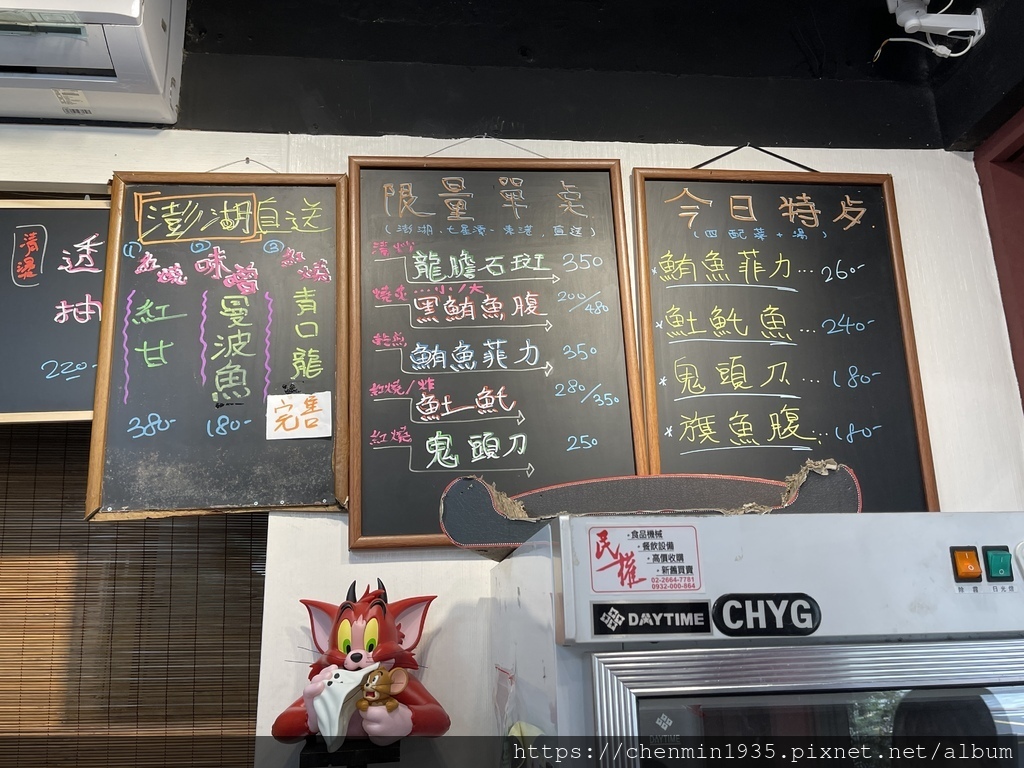 清湯
透抽
220-
澎湖直送
① ② ③
紅燒 味噌 紅燒
紅甘 曼波魚 青口龍
380- 180- 完售
限量單點
(澎湖、七星潭、東港、直送)
清炒
龍膽石斑 350
小/大
黑鮪魚腹 200/480
乾煎
鮪魚菲力 350
紅燒/炸
魠 280/350
紅燒
鬼頭刀 250
今日特餐
(四配菜+湯)
*鮪魚菲力...260-
*魠魚...240-
*鬼頭刀...180-
*旗魚腹...180-
民權
•食品機械
•餐飲設備
•高價收購
•新舊買賣
02-2664-7781
0932-000-864
DAYTIME
CHYG
日光燈
DAYTIME
https://chenmin1935.pixnet.net/album